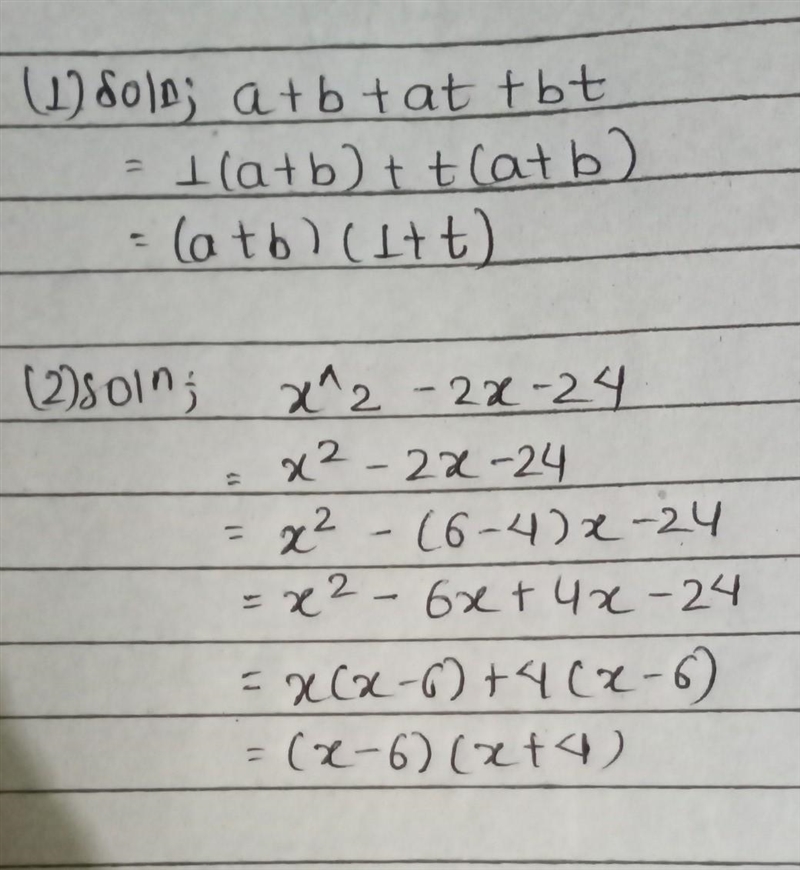 (1) soln; a+b+at+bt
= 1(a+b)+t(a+b)
= (a+b)(1+t)
(2) soln; x^2 -2x-24
= x² - 2x -24
= x² - (6-4)x -24
= x² - 6x+4x-24
= x(x-6)+4(x-6)
= (x-6)(x+4)